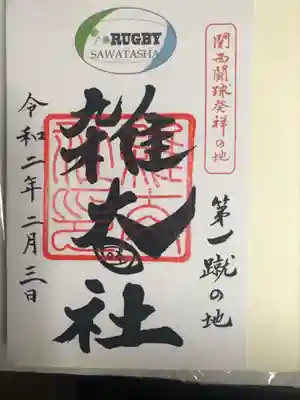 RUGBY
SAWATASHA
関西闘球発祥の地
第一蹴の地
雑太社
令和二年二月三日